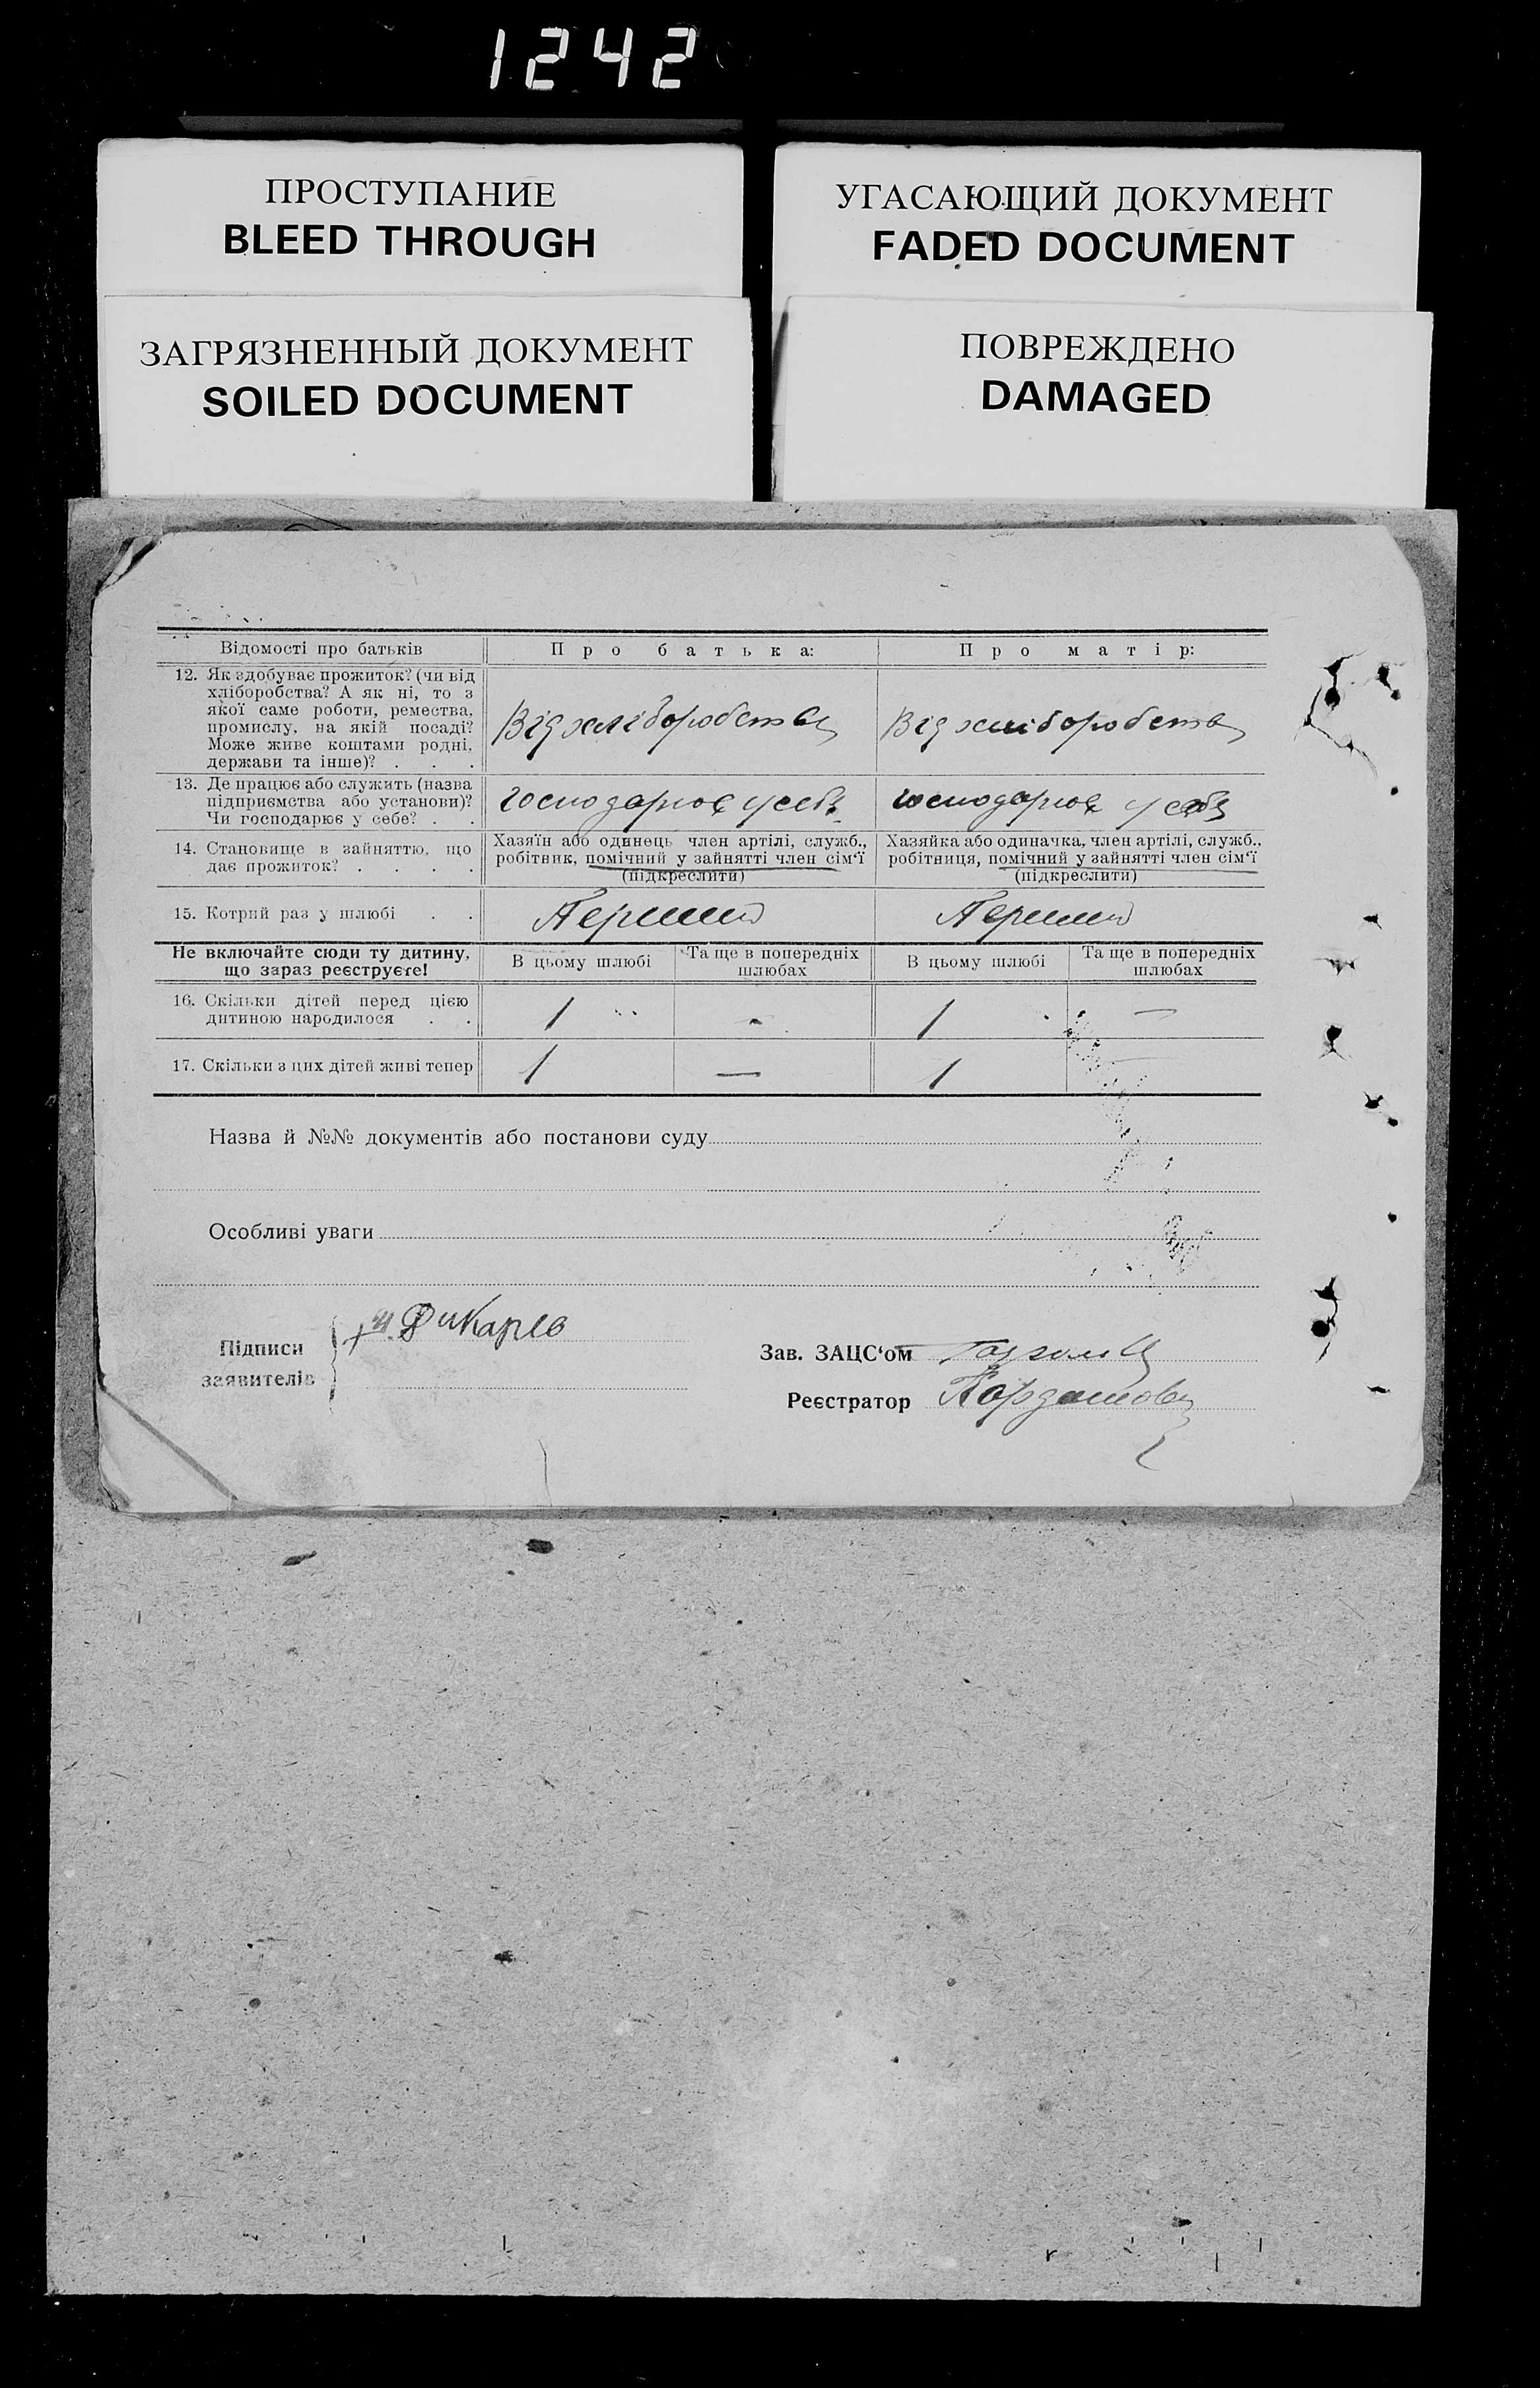 1242
ПРОСТУПАНИЕ
BLEED THROUGH
УГАСАЮЩИЙ ДОКУМЕНТ
FADED DOCUMENT
ЗАГРЯЗНЕННЫЙ ДОКУМЕНТ
SOILED DOCUMENT
ПОВРЕЖДЕНО
DAMAGED
Відомості про батьків
Про батька:
Про матір:
12. Як здобуває прожиток? (чи від
хліборобства? А як ні, то з
якої саме роботи, ремества,
промислу, на якій посаді?
Може живе коштами родні,
держави та інше)? . . .
Від хліборобства
Від хліборобства
13. Де працює або служить (назва
підприємства або установи)?
Чи господарює у себе? . .
господарює у себе
господарює у себе
14. Становище в зайняттю, що
дає прожиток? . . . .
Хазяїн або одинець член артілі, служб.,
робітник, помічний у зайнятті член сім'ї
(підкреслити)
Хазяйка або одиначка, член артілі, служб.,
робітниця, помічний у зайнятті член сім'ї
(підкреслити)
15. Котрий раз у шлюбі . .
Перший
Перший
Не включайте сюди ту дитину,
що зараз реєструєте!
В цьому шлюбі
Та ще в попередніх
шлюбах
В цьому шлюбі
Та ще в попередніх
шлюбах
16. Скільки дітей перед цією
дитиною народилося . .
1
-
1
—
17. Скільки з цих дітей живі тепер
1
—
1
Назва й №№ документів або постанови суду
Особливі уваги
Підписи
заявителів
Дикарев
Зав. ЗАЦС'ом
Реєстратор